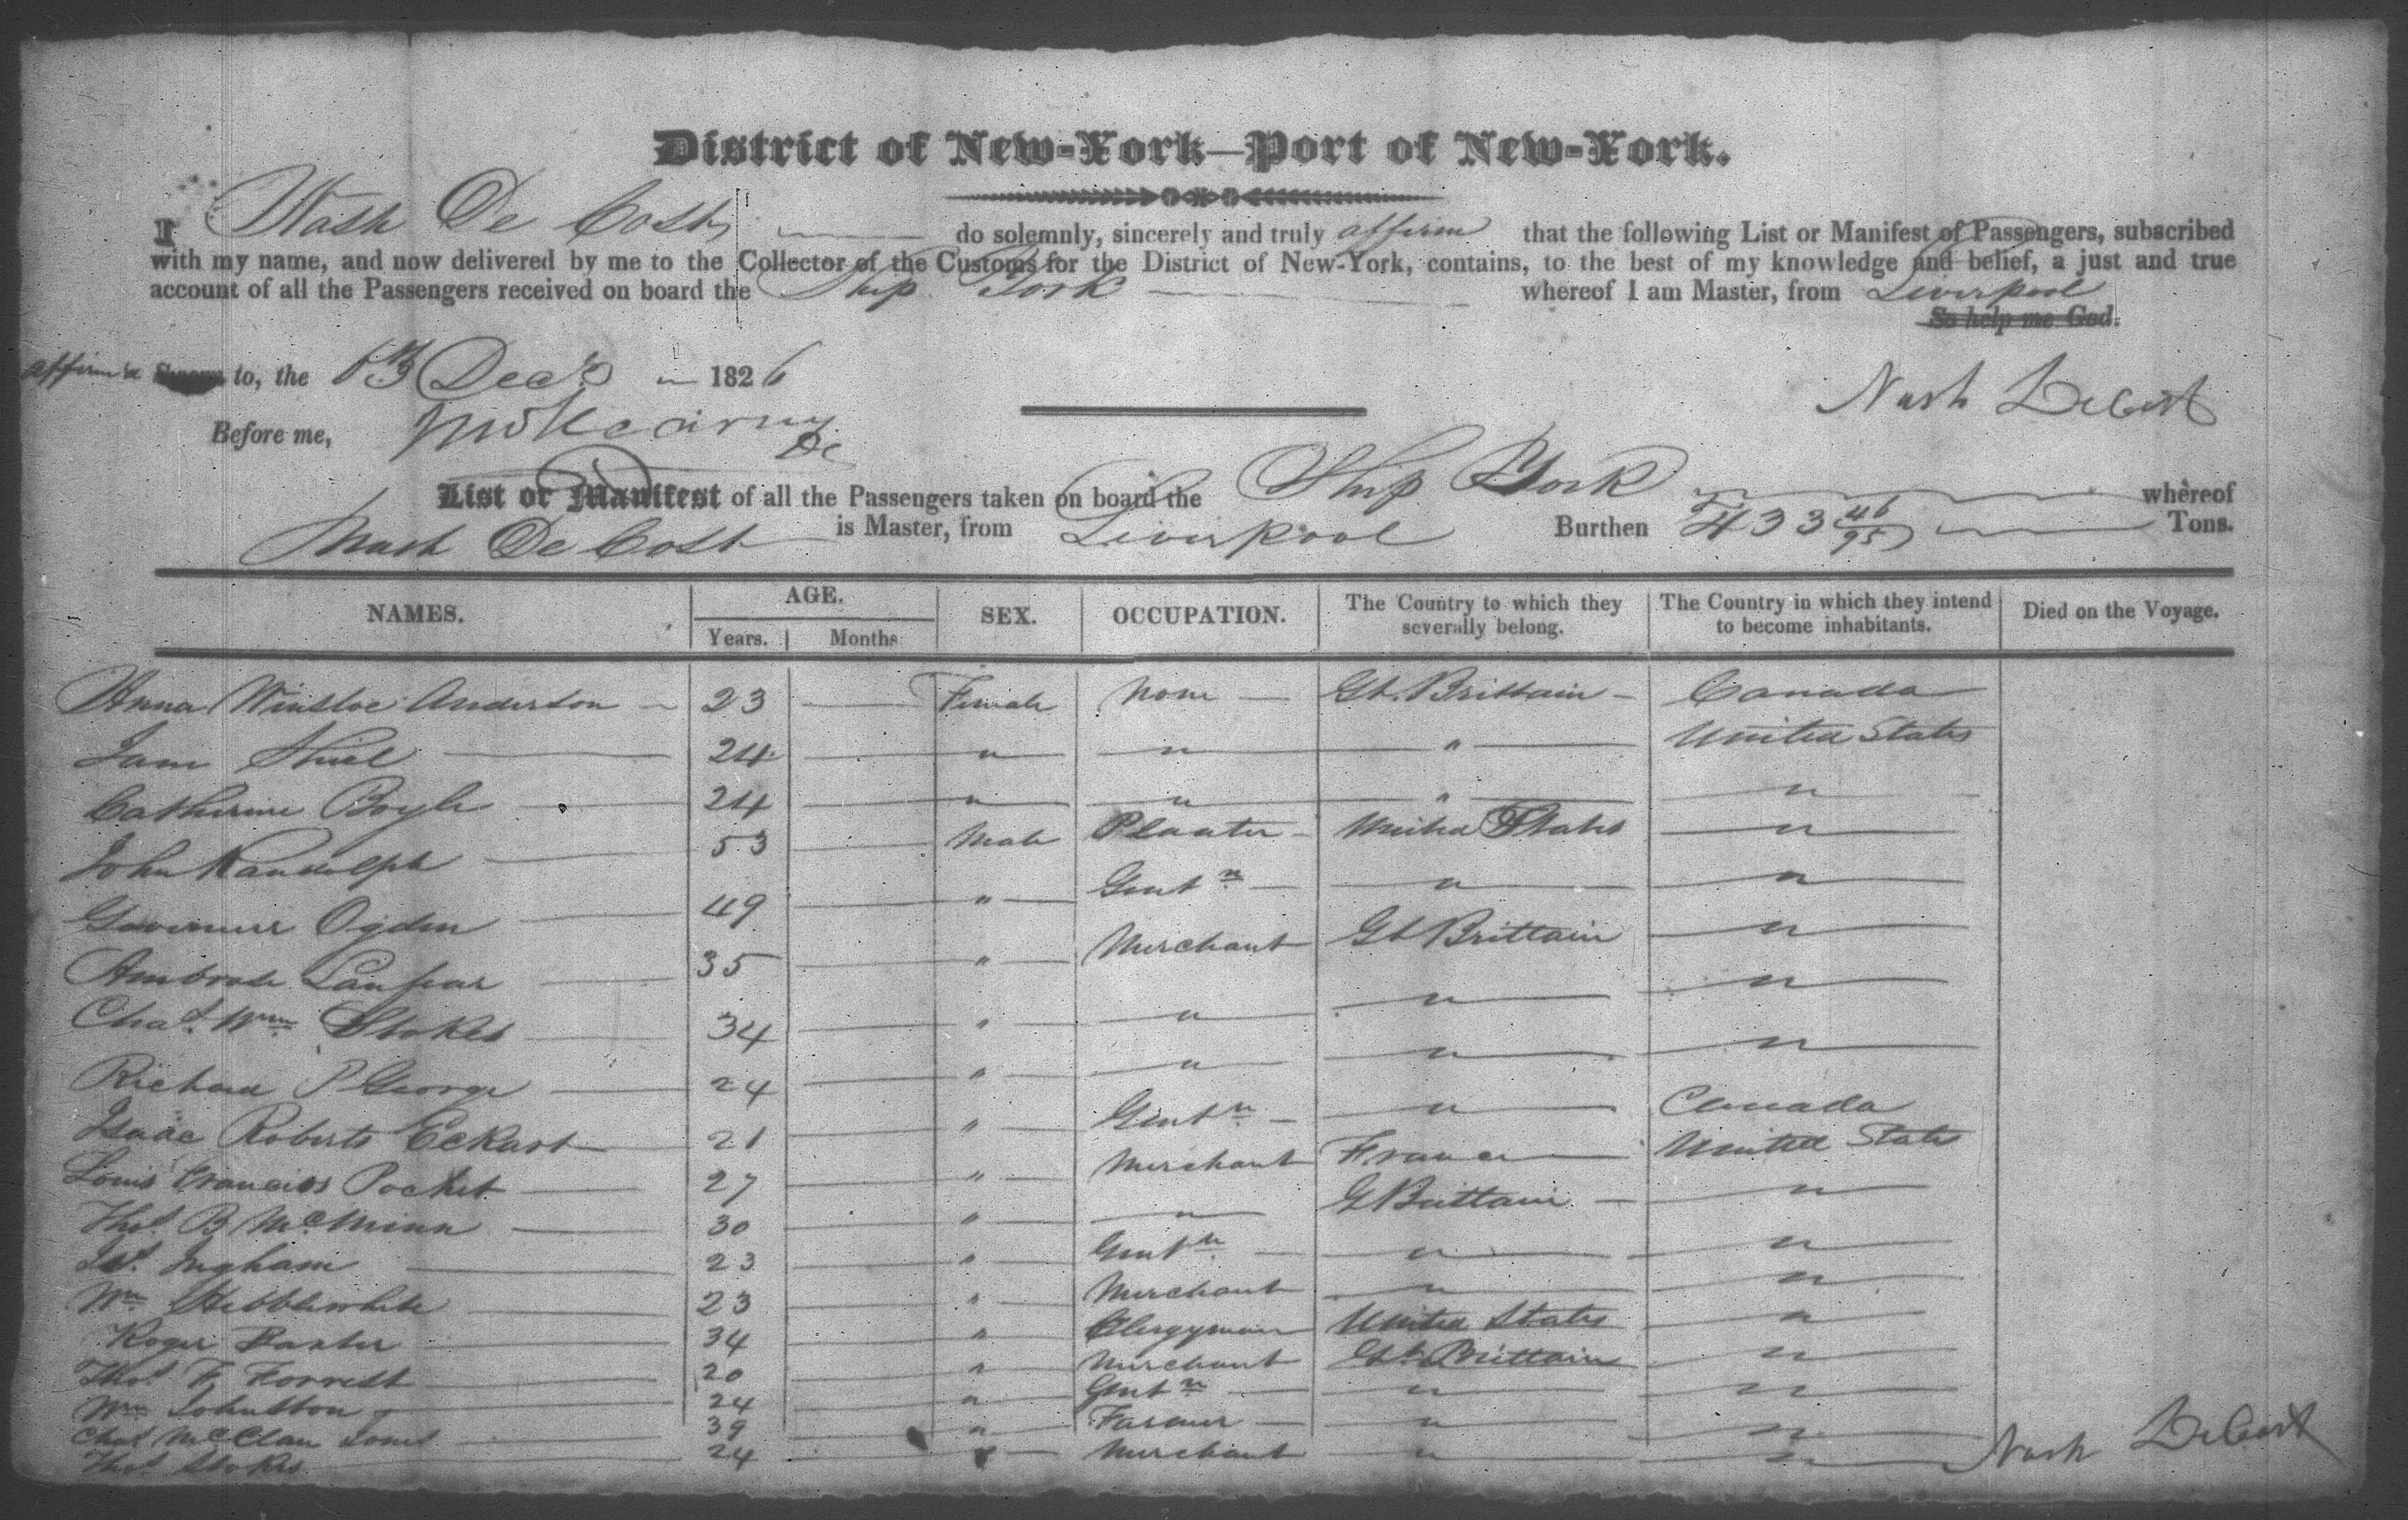 District of New-York—Port of New-York.
I Nash De Cost, do solemnly, sincerely and truly affirm that the following List or Manifest of Passengers, subscribed
with my name, and now delivered by me to the Collector of the Customs for the District of New-York, contains, to the best of my knowledge and belief, a just and true
account of all the Passengers received on board the Ship York whereof I am Master, from Liverpool
So help me God.
affirm'd to, the Decr 1826
Nash DeCost
Before me,
List or Manifest of all the Passengers taken on board the Ship York whereof
Nash De Cost is Master, from Liverpool Burthen 433 46/95 Tons.
NAMES. AGE. SEX. OCCUPATION. The Country to which they severally belong. The Country in which they intend to become inhabitants. Died on the Voyage.
Years. Months
Anna Winsloe Anderson 23 Female None Gt. Brittain Canada
Jane 24 " " " United States
Catherine Boyle 24 " " " "
John Randolph 53 Male Planter United States "
Governeur Ogden 49 " Gentn " "
Ambrose Lanfear 35 " Merchant Gt Brittain "
Chas. Wm Stokes 34 " " " "
Richard P George 24 " " " "
Isaac Roberts Eckart 21 " Gentn " Canada
Louis Francios Pocket 27 " Merchant France United States
Thos. B McMinn 30 " " G Brittain "
Ingham 23 " Gentn " "
Wm Hebblewhite 23 " Merchant " "
Roger Baxter 34 " Clergyman United States "
Thos. F Forrest 20 " Merchant Gt Brittain "
Wm Johnston 24 " Gentn " "
Chas McClan Jones 39 " Farmer " "
Thos. Stokes 24 " Merchant " "
Nash DeCost